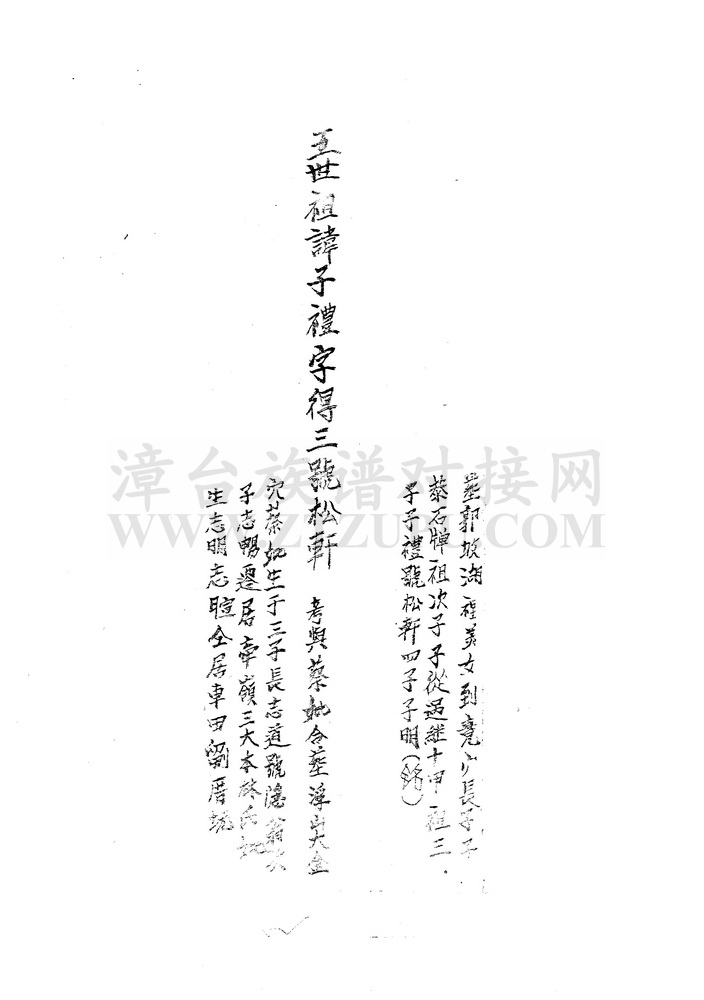 葬郭坡湖裡美女到鏡穴長子子
恭石牌祖次子子從過继十甲祖三
子子禮號松軒四子子明(銘)
五世祖諱子禮字得三號松軒 考與蔡妣合葬浮山大金
穴蔡妣生于三子長志道號隱翁次
子志暢遷居牽嶺三大本 氏妣
生志明志暄仝居車田劉厝
漳台族谱对接网